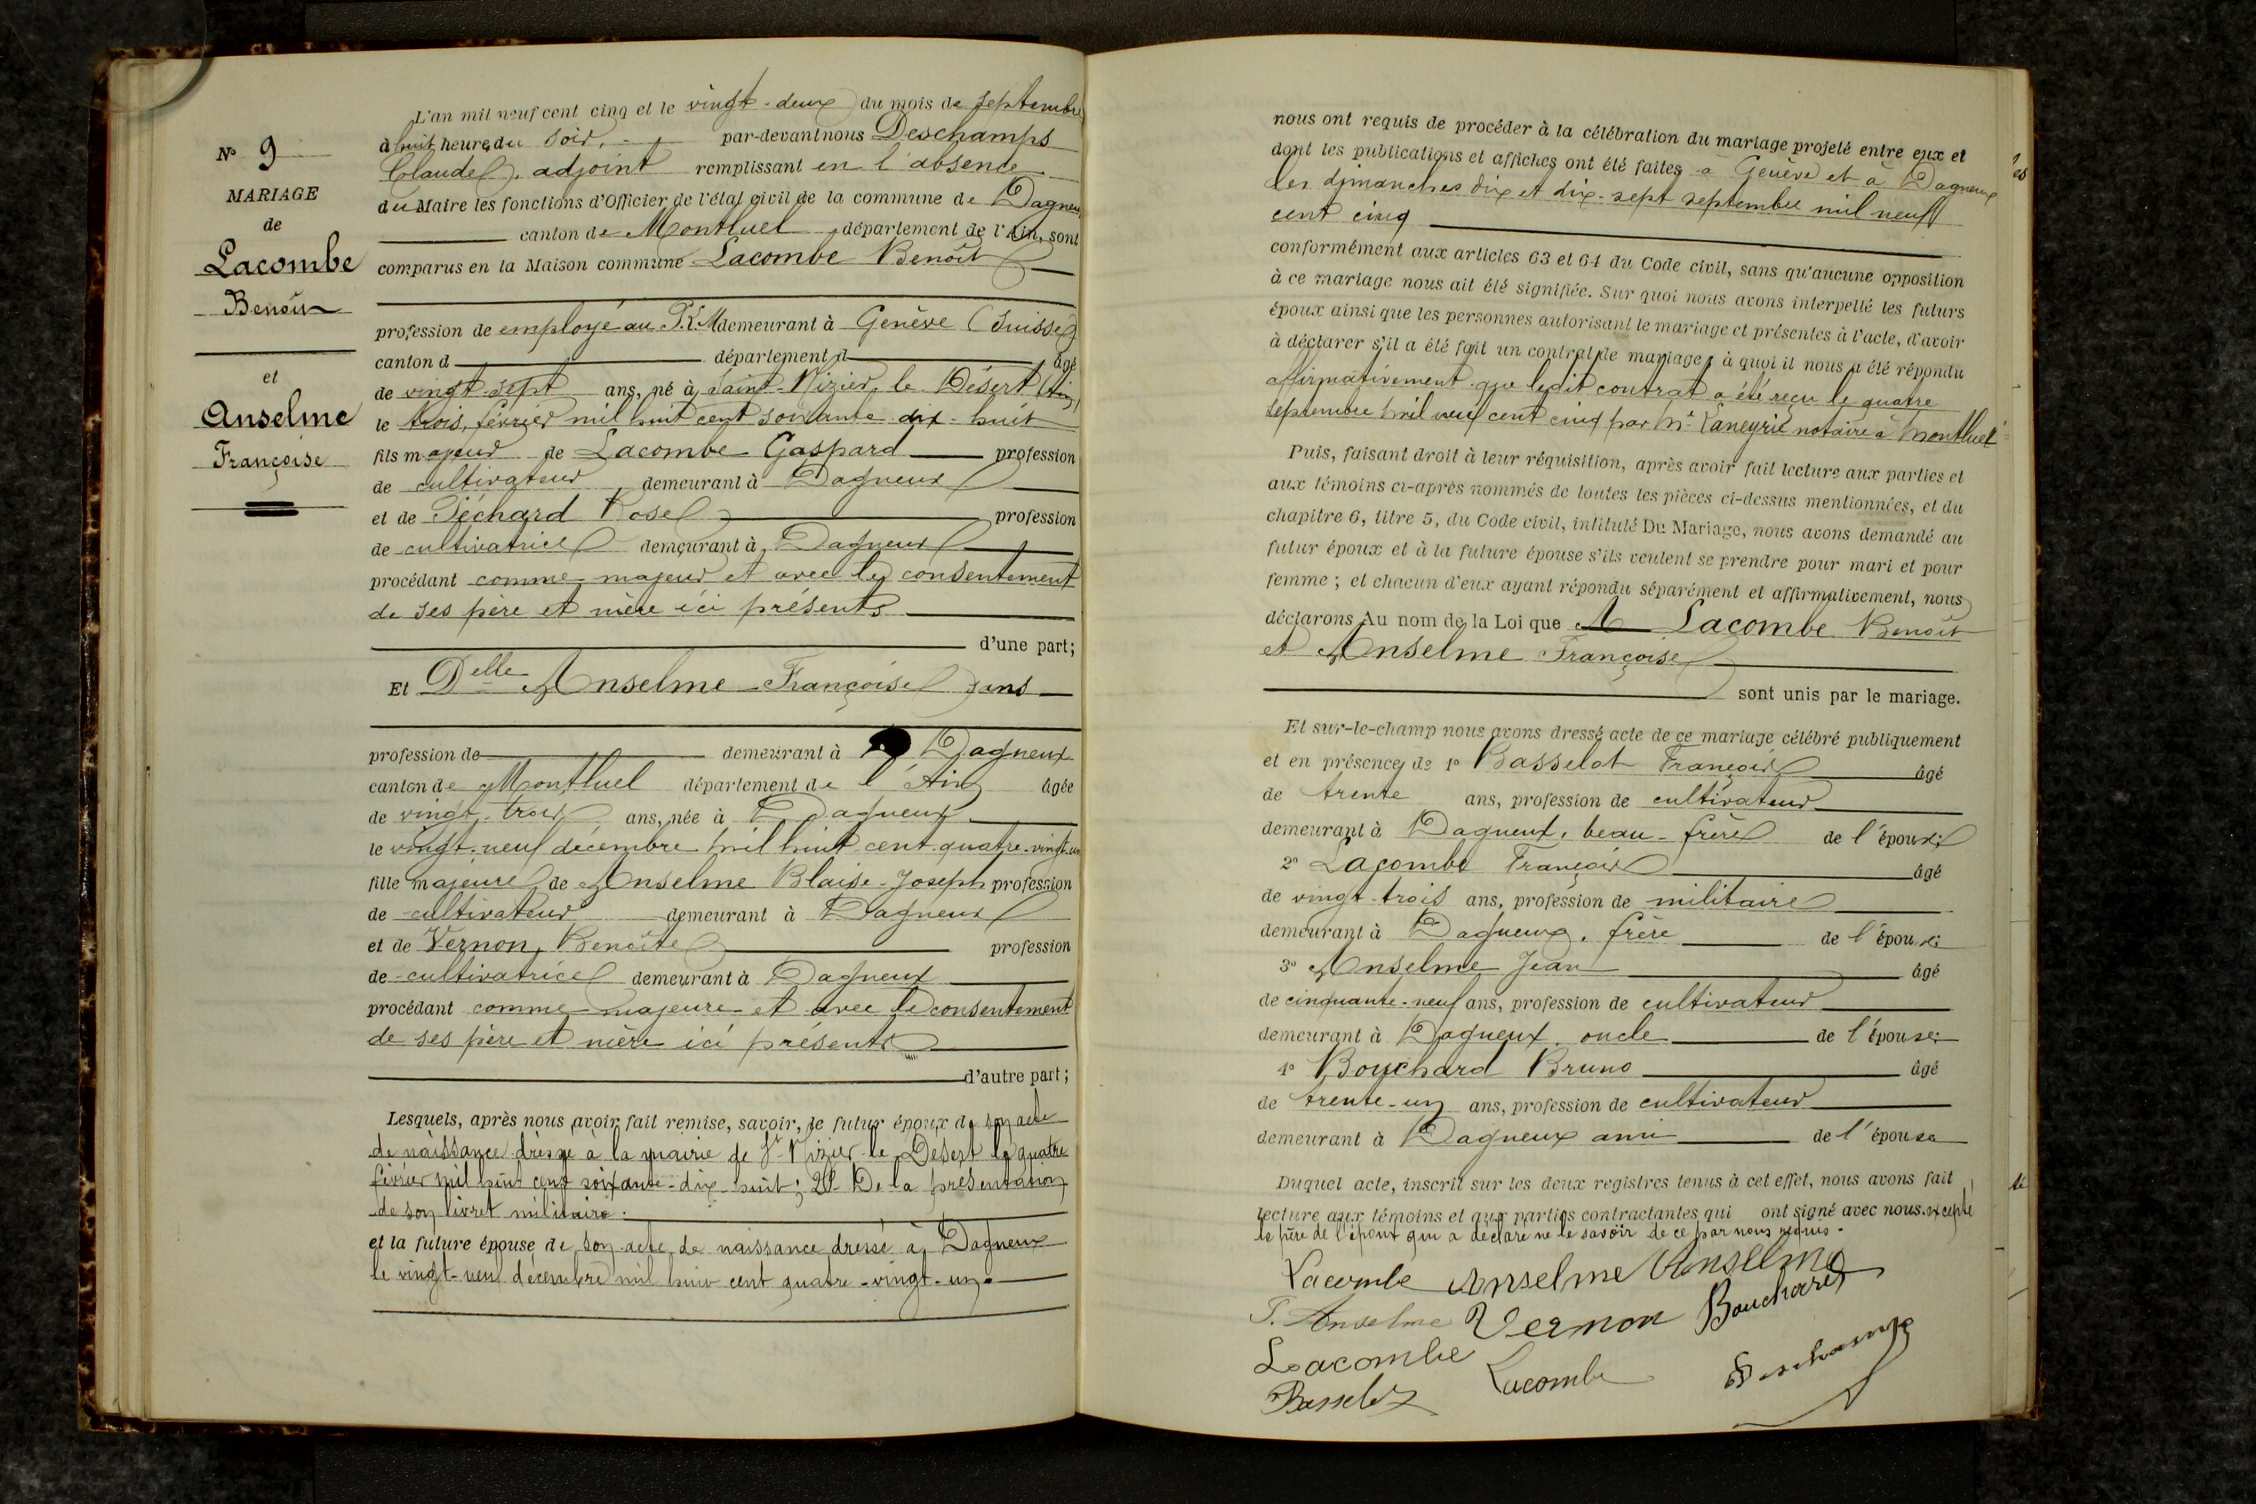 L'an mil neuf cent cinq et le vingt-deux du mois de septembre
à huit heures du soir, par-devant nous Deschamps
Claude, adjoint remplissant en l'absence
du Maire les fonctions d'Officier de l'état civil de la commune de Dagneux
canton de Montluel département de l'Ain, sont
comparus en la Maison commune Lacombe Benoît
profession de employé au demeurant à Genève (Suisse)
canton d département d âgé
de vingt sept ans, né à Saint-Nizier le Désert (Ain)
le trois février mil huit cent soixante dix-huit
fils majeur de Lacombe Gaspard profession
de cultivateur demeurant à Dagneux
et de Péchard Rose profession
de cultivatrice demeurant à Dagneux
procédant comme majeur et avec le consentement
de ses père et mère ici présents
d'une part;
Et Delle Anselme Françoise sans
profession de demeurant à Dagneux
canton de Montluel département de l'Ain âgée
de vingt-trois ans, née à Dagneux
le vingt-neuf décembre mil huit cent quatre-vingt-un
fille majeure de Anselme Blaise-Joseph profession
de cultivateur demeurant à Dagneux
et de Vernon Benoîte profession
de cultivatrice demeurant à Dagneux
procédant comme majeure et avec le consentement
de ses père et mère ici présents
d'autre part;
Lesquels, après nous avoir fait remise, savoir, le futur époux de son acte
de naissance dressé à la mairie de St Nizier-le-Désert le quatre
février mil huit cent soixante-dix-huit; 2° De la présentation
de son livret militaire.
et la future épouse de son acte de naissance dressé à Dagneux
le vingt-neuf décembre mil huit cent quatre-vingt-un.
No 9
MARIAGE
de
Lacombe
Benoît
et
Anselme
Françoise
nous ont requis de procéder à la célébration du mariage projeté entre eux et
dont les publications et affiches ont été faites à Genève et à Dagneux
les dimanches dix et dix-sept septembre mil neuf
cent cinq
conformément aux articles 63 et 64 du Code civil, sans qu'aucune opposition
à ce mariage nous ait été signifiée. Sur quoi nous avons interpellé les futurs
époux ainsi que les personnes autorisant le mariage et présentes à l'acte, d'avoir
à déclarer s'il a été fait un contrat de mariage, à quoi il nous a été répondu
affirmativement que ledit contrat a été reçu le quatre
septembre mil neuf cent cinq par Me Laneyrie notaire à Montluel
Puis, faisant droit à leur réquisition, après avoir fait lecture aux parties et
aux témoins ci-après nommés de toutes les pièces ci-dessus mentionnées, et du
chapitre 6, titre 5, du Code civil, intitulé Du Mariage, nous avons demandé au
futur époux et à la future épouse s'ils veulent se prendre pour mari et pour
femme; et chacun d'eux ayant répondu séparément et affirmativement, nous
déclarons Au nom de la Loi que M Lacombe Benoît
et Anselme Françoise
sont unis par le mariage.
Et sur-le-champ nous avons dressé acte de ce mariage célébré publiquement
et en présence de 1° Basselot François âgé
de trente ans, profession de cultivateur
demeurant à Dagneux, beau-frère de l'époux;
2° Lacombe François âgé
de vingt-trois ans, profession de militaire
demeurant à Dagneux, frère de l'époux;
3° Anselme Jean âgé
de cinquante-neuf ans, profession de cultivateur
demeurant à Dagneux, oncle de l'épouse;
4° Bouchard Bruno âgé
de trente-un ans, profession de cultivateur
demeurant à Dagneux ami de l'épouse
Duquel acte, inscrit sur les deux registres tenus à cet effet, nous avons fait
lecture aux témoins et aux parties contractantes qui ont signé avec nous. excepté
le père de l'époux qui a déclaré ne le savoir de ce par nous requis.
Lacombe Anselme Anselme
F. Anselme Vernon Bouchard
Lacombe Lacombe Deschamps
Basselot